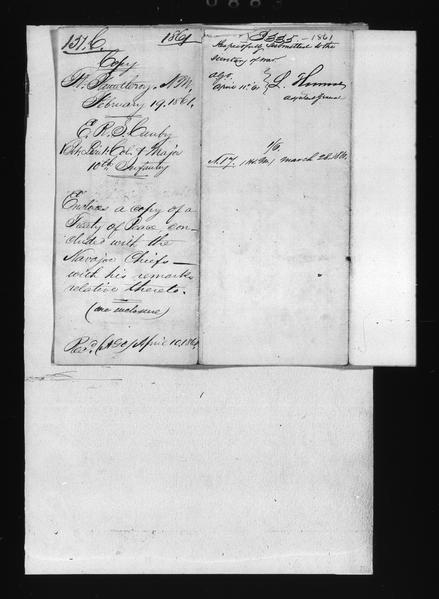 151. C. 1861
Copy
Ft. Fauntleroy, N.M.
February 19, 1861.
E. R. S. Canby
Bvt. Lieut. Col. & Major
10th Infantry
Encloses a copy of a
Treaty of Peace, con-
cluded with the
Navajoe Chiefs—
with his remarks
relative thereto.
(one enclosure)
Rec'd (AGO) April 10, 1861.
1861
Respectfully submitted to the
Secretary of War.
AGO.
April 11. 61
L. Thomas
Adjutant General
N. 17. March 26 1861.